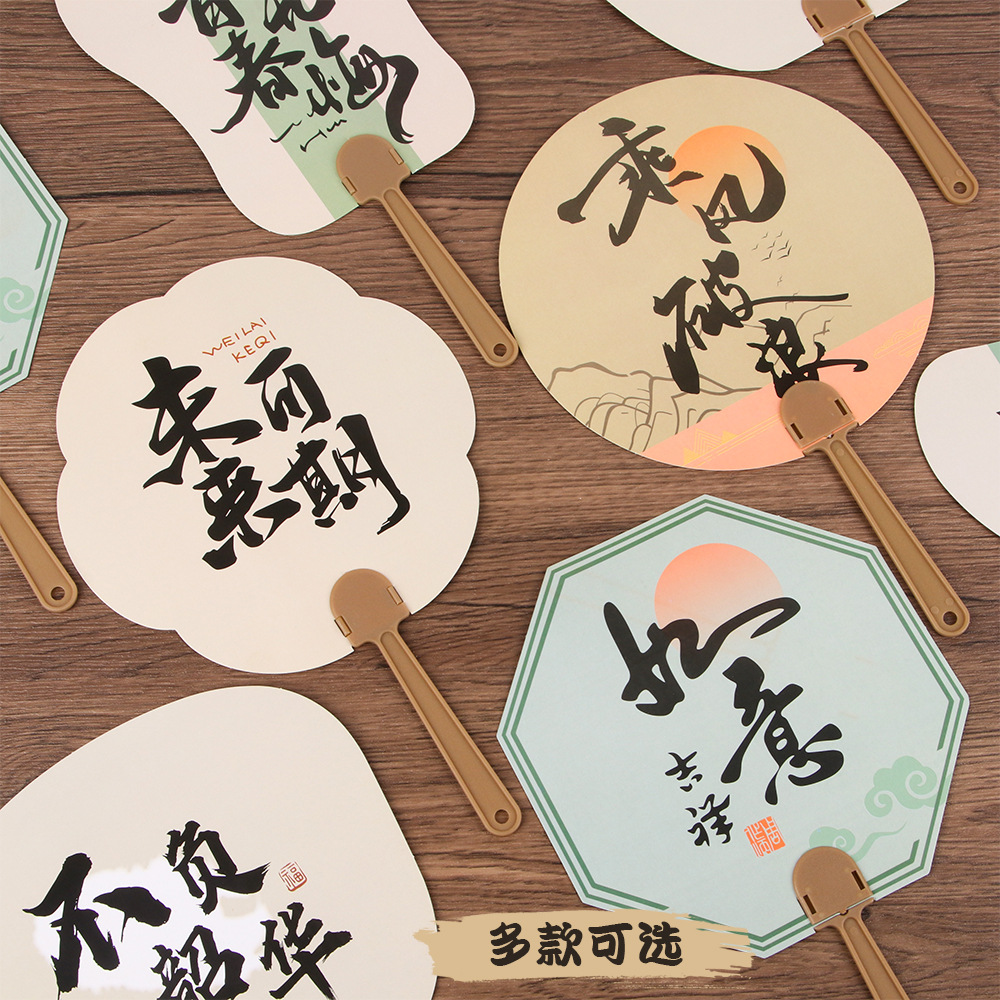 青春
无悔
乘风
破浪
WEILAI
KEQI
未来
可期
如意
吉祥
不负
韶华
福
多款可选